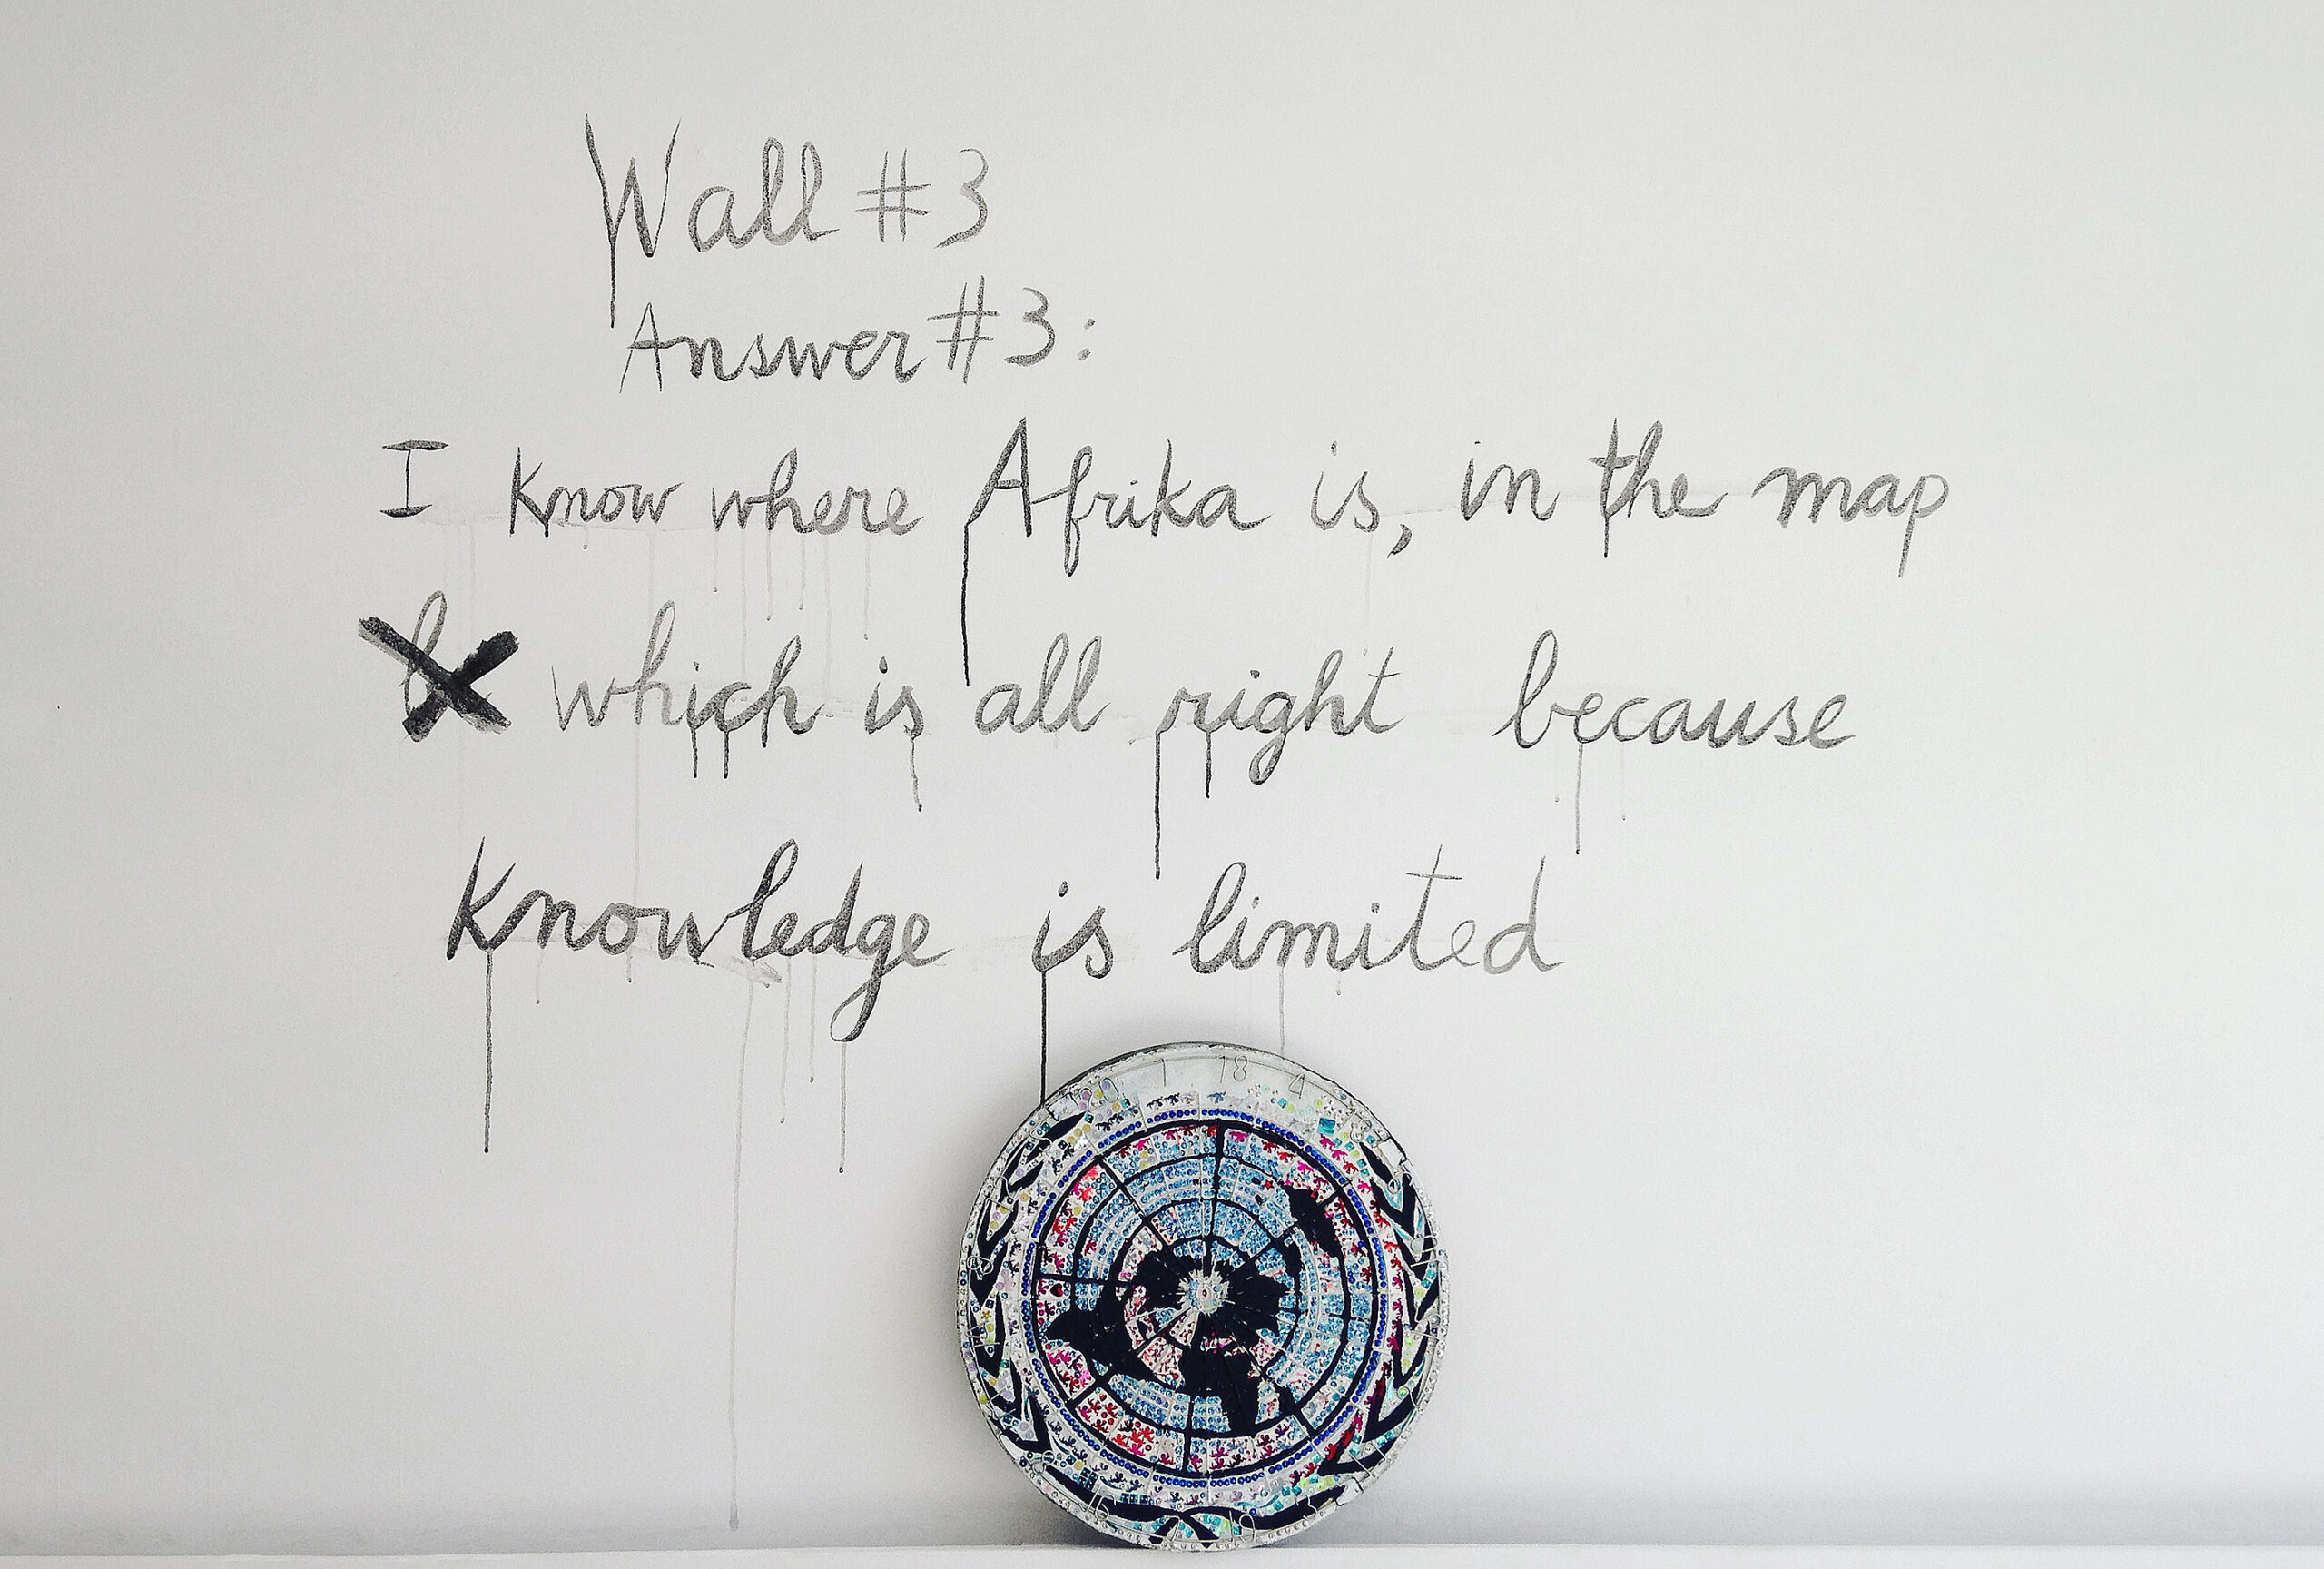 Wall #3
Answer #3:
I know where Afrika is, in the map
which is all right because
knowledge is limited
1 18 4
16 19 3